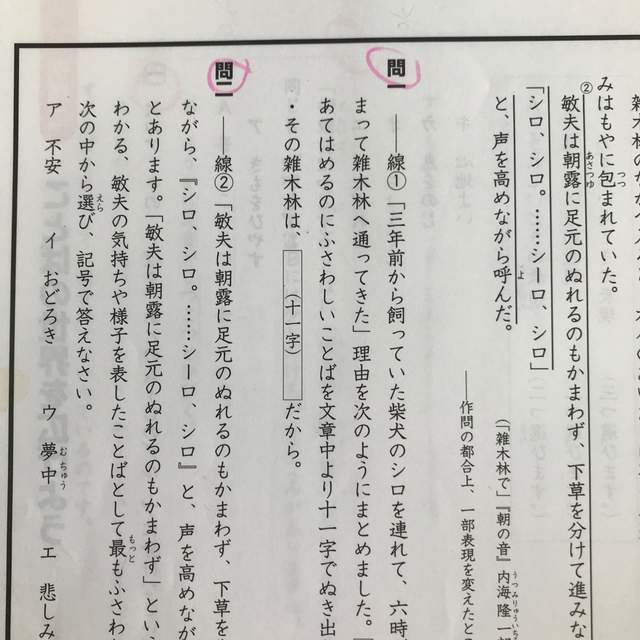 みはもやに包まれていた。
つつ
②敏夫は朝露に足元のぬれるのもかまわず、下草を分けて進みな
あさつゆ
「シロ、シロ。……シーロ、シロ」
と、声を高めながら呼んだ。
よ
(「雑木林で」『朝の音』内海隆一
うつみりゅういち
――作問の都合上、一部表現を変えたところ
問一 ――線①「三年前から飼っていた柴犬のシロを連れて、六時
まって雑木林へ通ってきた」理由を次のようにまとめました。
あてはめるのにふさわしいことばを文章中より十一字でぬき出
・その雑木林は、(十一字)だから。
問二 ――線②「敏夫は朝露に足元のぬれるのもかまわず、下草を
ながら、『シロ、シロ。……シーロ、シロ』と、声を高めなが
とあります。「敏夫は朝露に足元のぬれるのもかまわず」という
わかる、敏夫の気持ちや様子を表したことばとして最もふさわ
もっと
次の中から選び、記号で答えなさい。
えら
ア 不安 イ おどろき ウ 夢中 エ 悲しみ
むちゅう